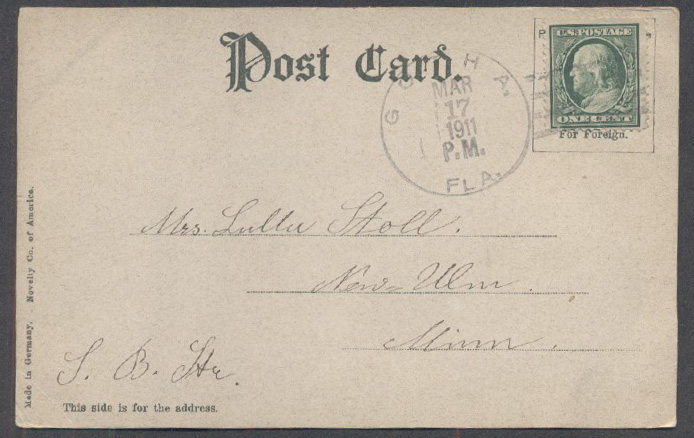 Post Card.
U.S. POSTAGE
ONE CENT
For Foreign.
MAR
17
1911
P.M.
FLA.
Mrs. Stoll.
New Ulm.
Minn.
S. B. Str.
This side is for the address.
Made in Germany. - Novelty Co. of America.